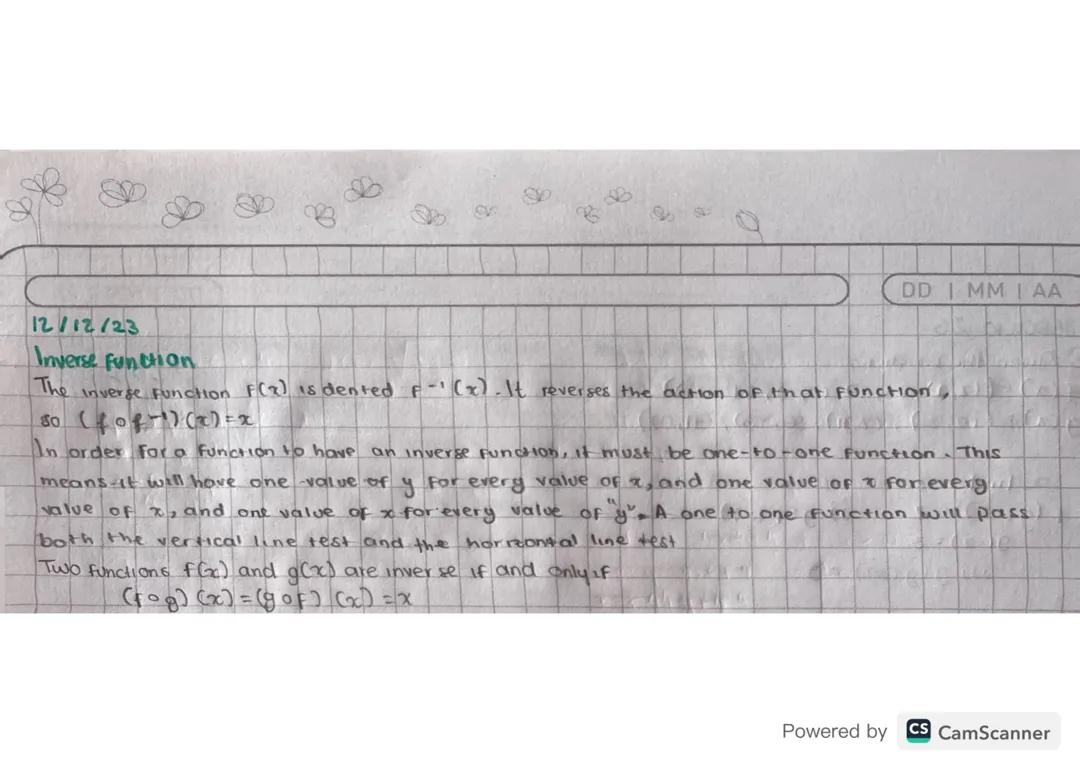 DD | MM | AA
12/12/23
Inverse function
The inverse function f(x) is dented f⁻¹(x). It reverses the action of that function,
so (f o f⁻¹)(x)=x
In order for a function to have an inverse function, it must be one-to-one function. This
means it will have one value of y for every value of x, and one value of x for every
value of x, and one value of x for every value of "y". A one to one function will pass
both the vertical line test and the horizontal line test
Two functions f(x) and g(x) are inverse if and only if
(f o g) (x) = (g o f) (x) = x
Powered by CS CamScanner